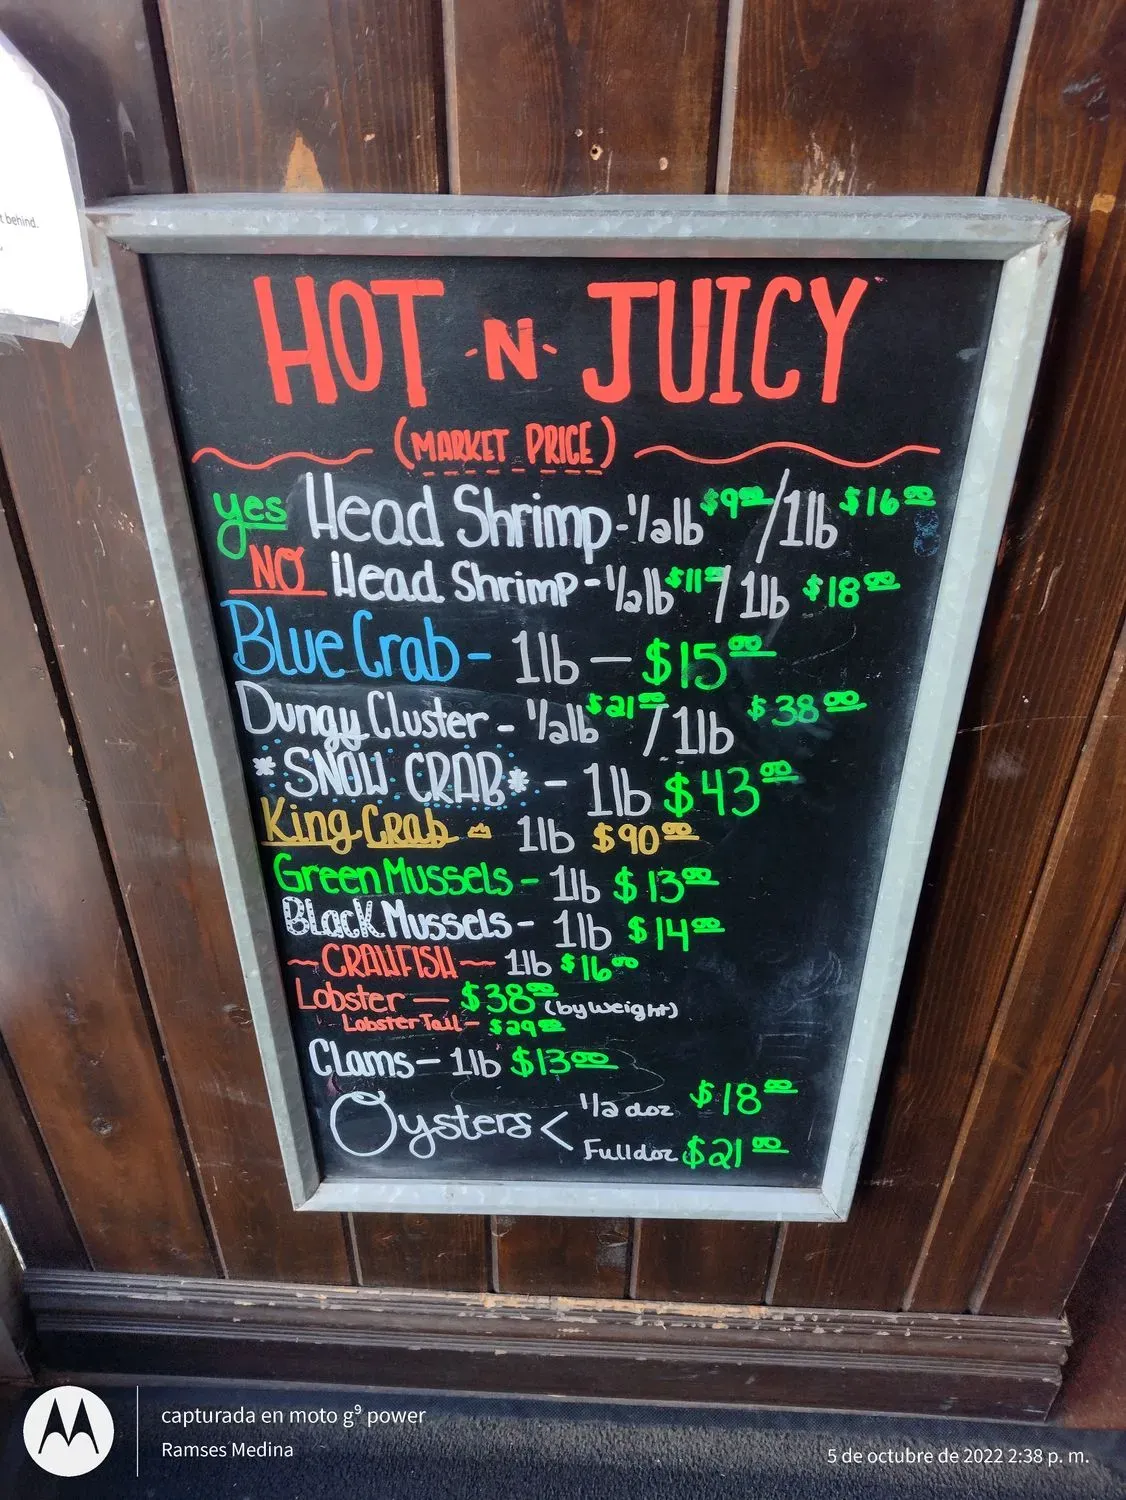 t behind.
HOT -N- JUICY
(MARKET PRICE)
yes Head Shrimp - 1/2 lb $9.00 / 1 lb $16.00
NO Head Shrimp - 1/2 lb $11.00 / 1 lb $18.00
Blue Crab - 1 lb — $15.00
Dungy Cluster - 1/2 lb $21.00 / 1 lb $38.00
*SNOW CRAB* - 1 lb $43.00
King Crab 1 lb $90.00
Green Mussels - 1 lb $13.00
Black Mussels - 1 lb $14.00
~CRAWFISH~ 1 lb $16.00
Lobster — $38.00 (by weight)
Lobster Tail - $29.00
Clams - 1 lb $13.00
Oysters < 1/2 doz $18.00
Full doz $21.00
capturada en moto g⁹ power
Ramses Medina
5 de octubre de 2022 2:38 p. m.